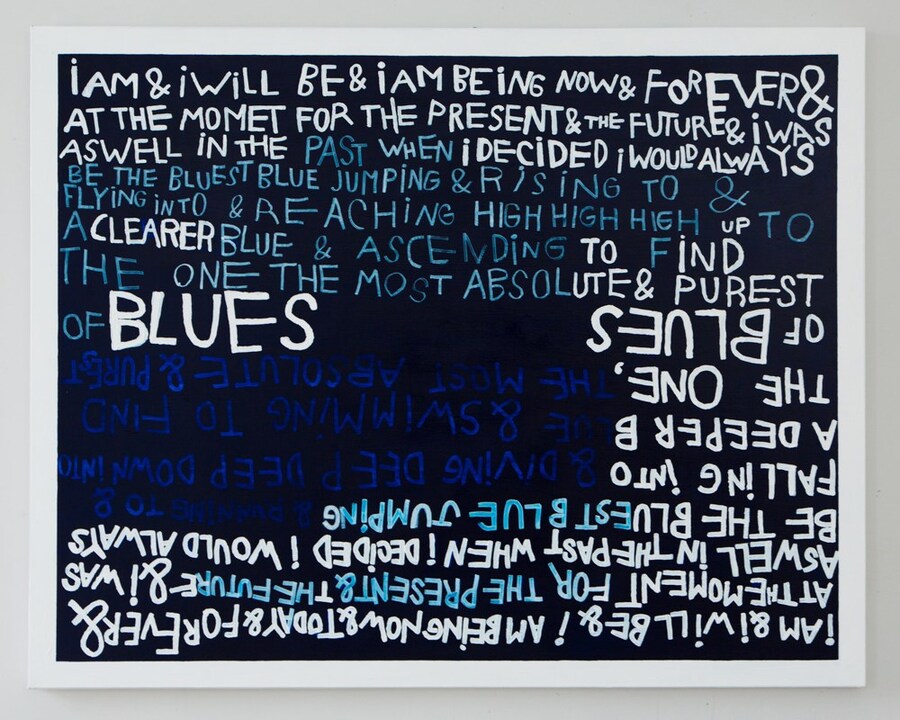 iAM & iWiLL BE & iAM BEiNG NOW & FOREVER &
AT THE MOMET FOR THE PRESENT & THE FUTURE & iWAS
ASWELL iN THE PAST WHEN iDECiDED iWOULD ALWAYS
BE THE BLUEST BLUE JUMPiNG & RiSiNG TO &
FLYiNG iNTO & REACHiNG HIGH HIGH HIGH UP TO
A CLEARER BLUE & ASCENDiNG TO FiND
THE ONE THE MOST ABSOLUTE & PUREST
OF BLUES
iAM & iWiLL BE & I AM BEiNG NOW & TODAY & FOREVER &
AT THE MOMENT FOR THE PRESENT & THE FUTURE & i WAS
ASWELL iN THE PAST WHEN I DECiDED I WOULD ALWAYS
BE THE BLUEST BLUE JUMPiNG & RUNNiNG TO &
FALLiNG iNTO & DiViNG DEEP DEEP DOWN iNTO
A DEEPER BLUE & SWiMMiNG TO FiND
THE ONE, THE MOST ABSOLUTE & PUREST
OF BLUES